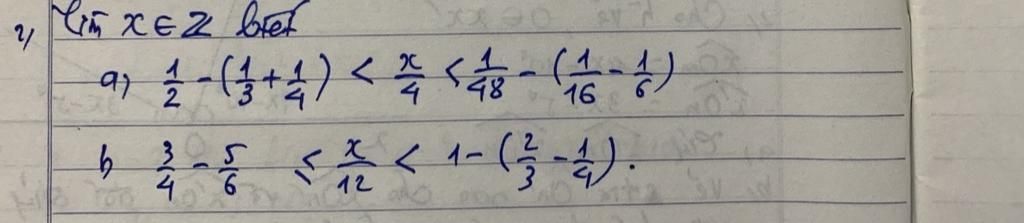 2, Tìm x ∈ Z biết
a) 1/2 - (1/3 + 1/4) < x/4 < 1/48 - (1/16 - 1/6)
b 3/4 - 5/6 ≤ x/12 < 1 - (2/3 - 1/4).